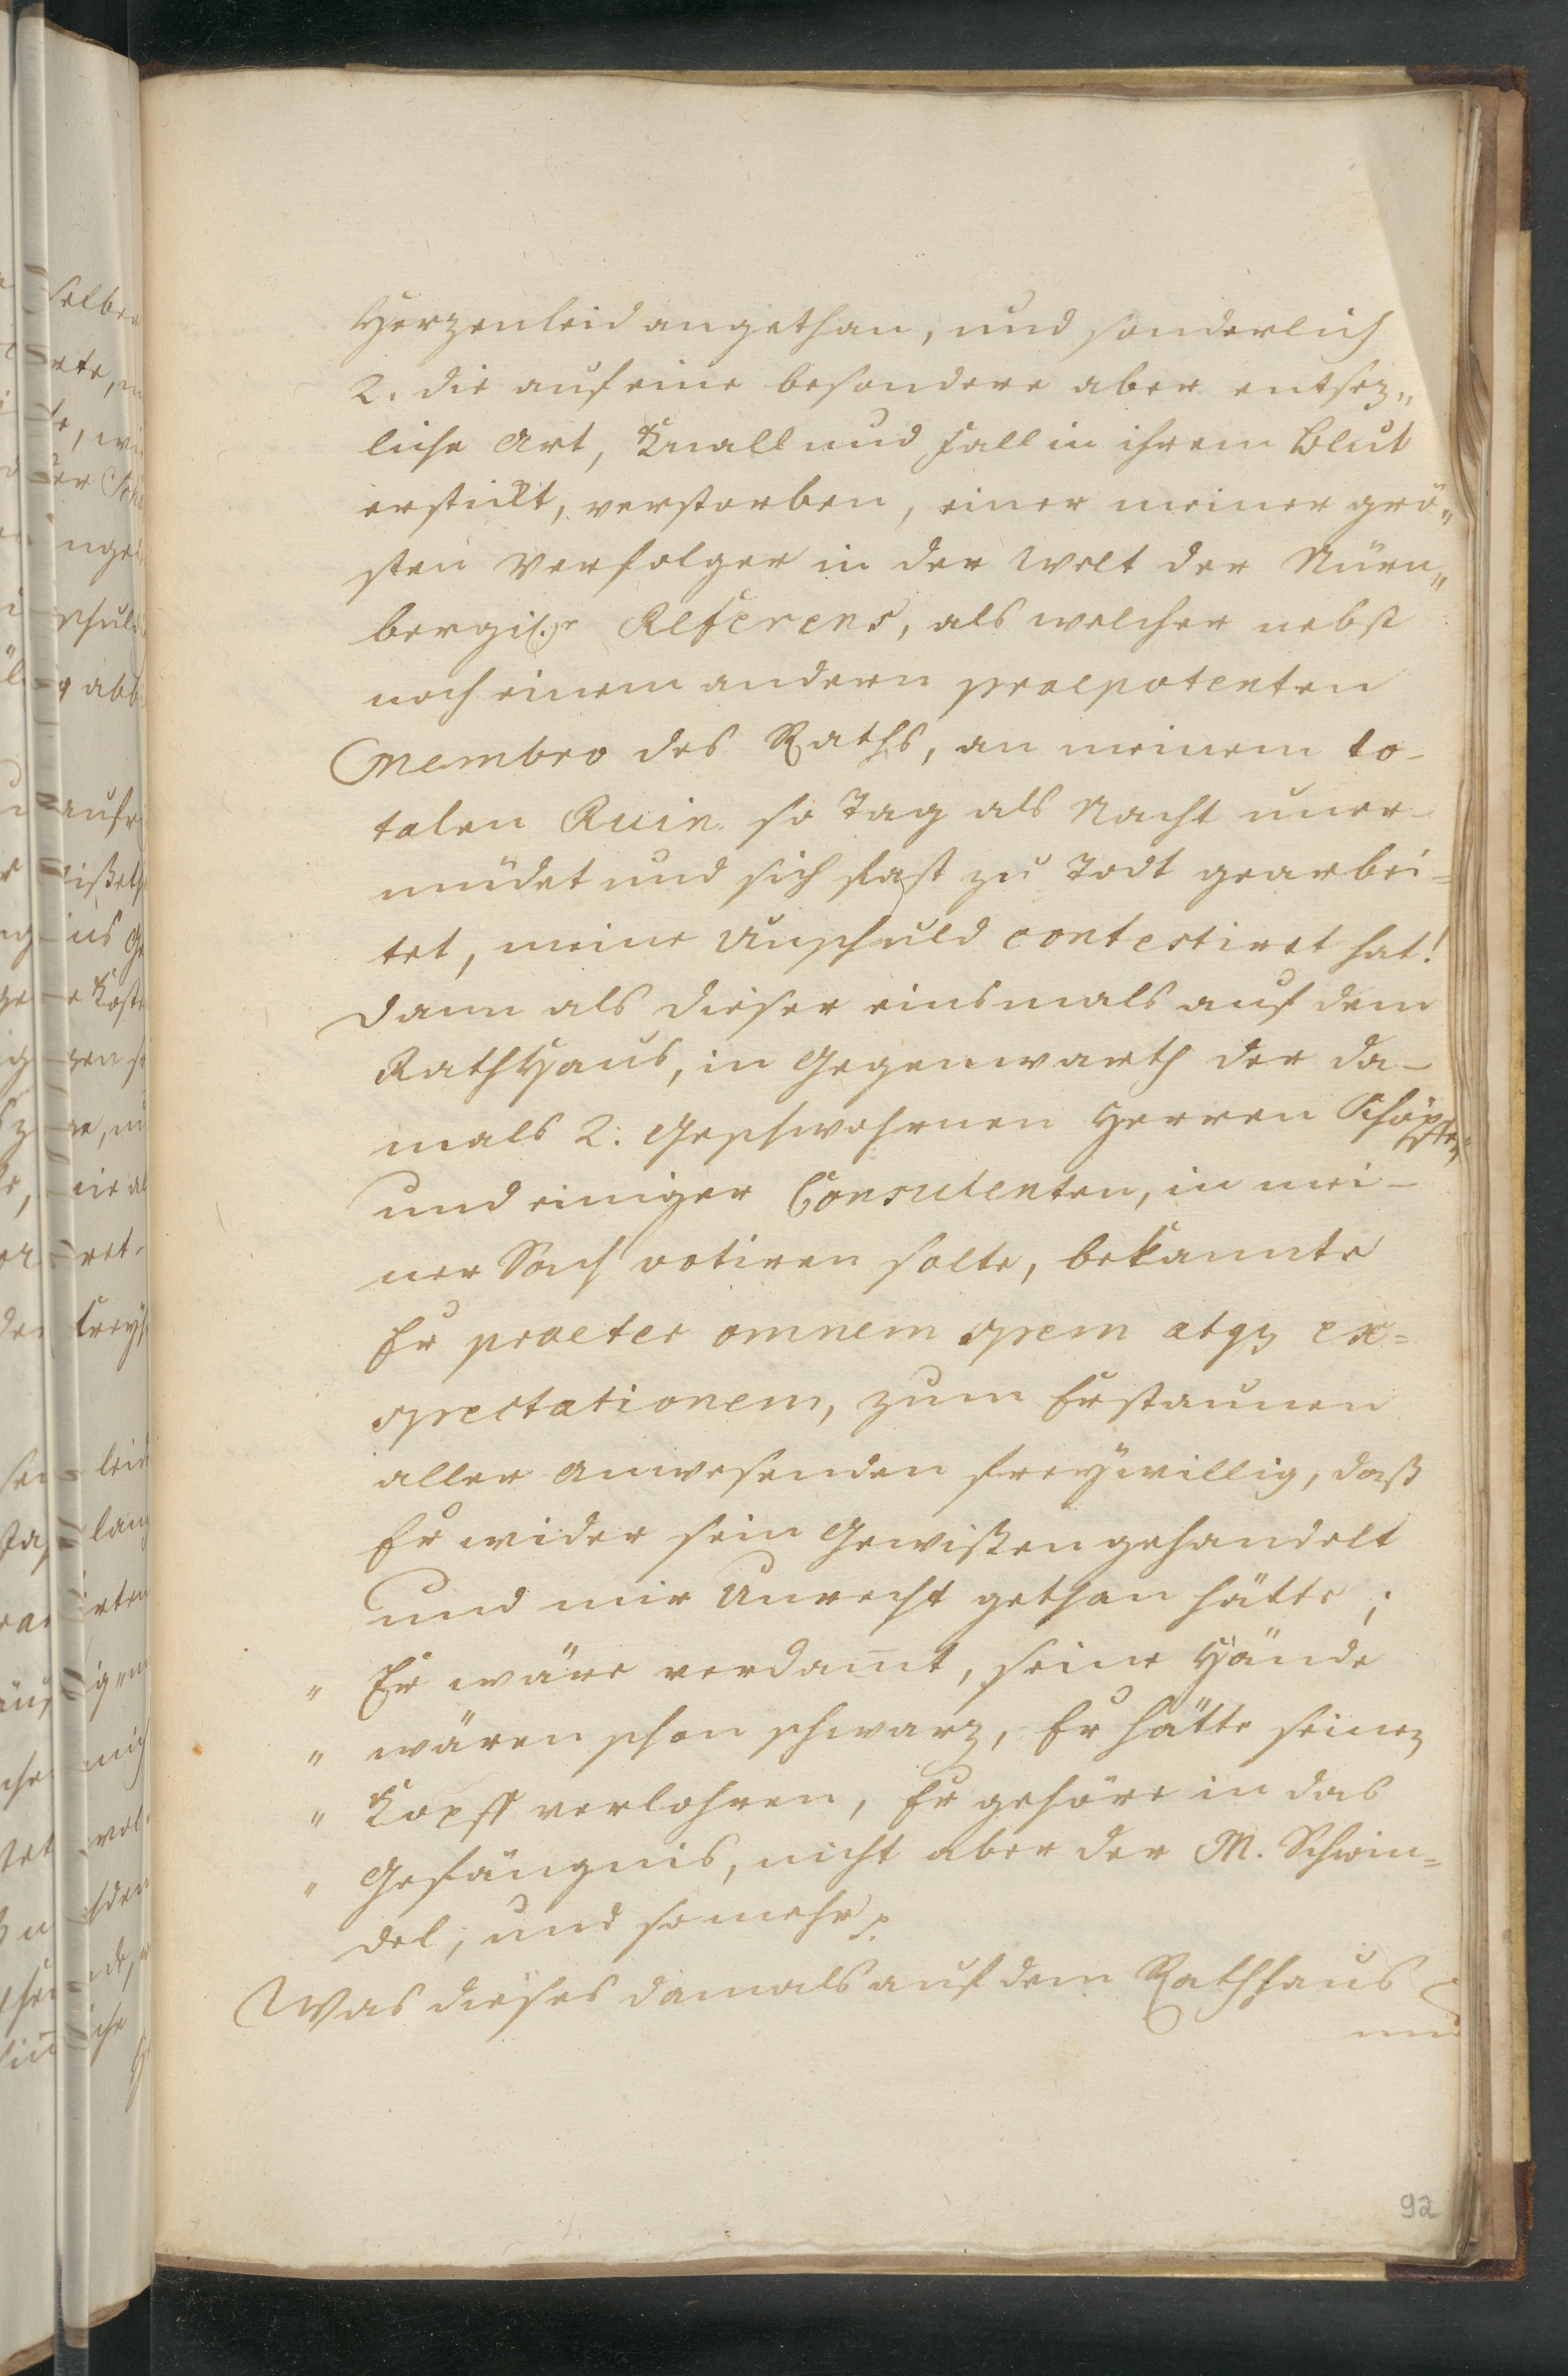 Herzenleid angethan, und sonderlich
2. die auf eine besondere aber entsez„
liche Art, Knall und Fall in ihrem Blut
erstikt, verstorben, einer meiner grö„
sten Verfolger in der Welt der Nürn„
bergis. Referens, als welcher nebst
noch einem andern praepotenten
Membro des Raths, an meinem to-
talen Ruin so Tag als Nacht uner-
müdet und sich fast zu Todt gearbei=
tet, meine Unschuld contestiret hat!
Dann als dieser einsmals auf dem
RathHaus, in Gegenwarth der da-
mals 2. Geschwohrnen Herren Schöpffen
und einiger Consulenten, in mei-
ner Sach votiren solte, bekannte
Er praeter omnem spem atqz ex=
spectationem, zum Erstaunen
aller Anwesenden freÿwillig, daß
Er wider sein Gewißen gehandelt
und mir Unrecht gethan hätte;
" Er wäre verdam̅t, seine Hände
" wären schon schwarz, Er hätte seinen
" Kopff verlohren, Er gehöre in das
" Gefängnis, nicht aber der M. Schwin=
del, und so mehr
Was dieses damals auf dem Rathhaus
92